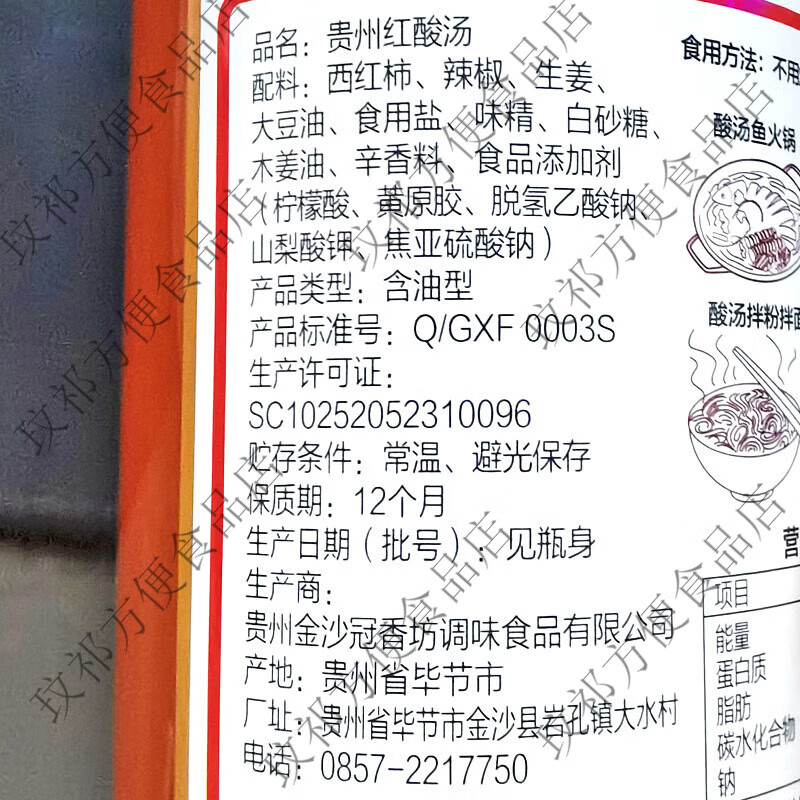 品名：贵州红酸汤
配料：西红柿、辣椒、生姜、
大豆油、食用盐、味精、白砂糖、
木姜油、辛香料、食品添加剂
（柠檬酸、黄原胶、脱氢乙酸钠、
山梨酸钾、焦亚硫酸钠）
产品类型：含油型
产品标准号：Q/GXF 0003S
生产许可证：
SC10252052310096
贮存条件：常温、避光保存
保质期：12个月
生产日期（批号）：见瓶身
生产商：
贵州金沙冠香坊调味食品有限公司
产地：贵州省毕节市
厂址：贵州省毕节市金沙县岩孔镇大水村
电话：0857-2217750
食用方法：不用
酸汤鱼火锅
酸汤拌粉拌面
营
项目
能量
蛋白质
脂肪
碳水化合物
钠
玟祁方便食品店
玟祁方便食品店
玟祁方便食品店
玟祁方便食品店
玟祁方便食品店
玟祁方便食品店